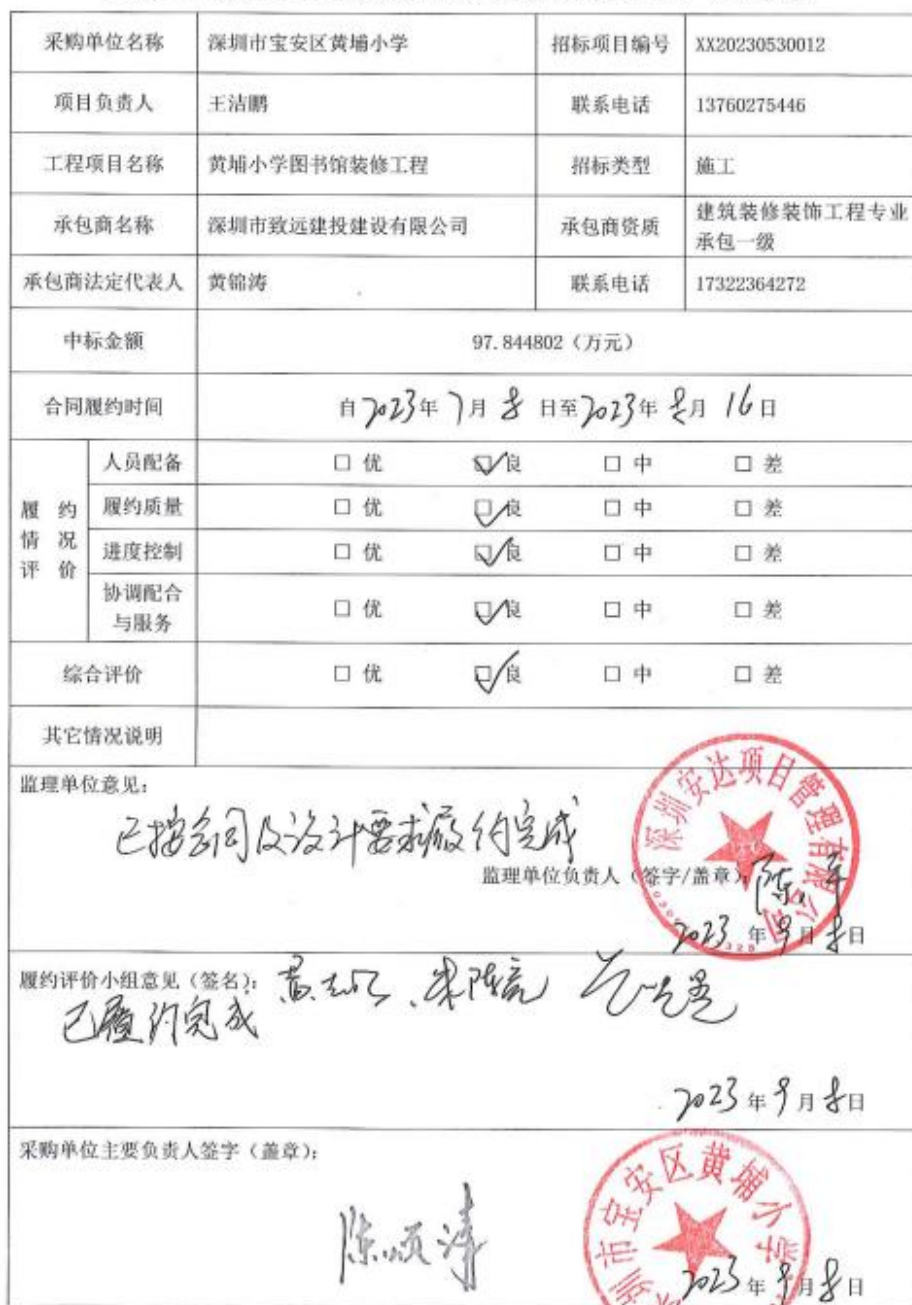 采购单位名称 深圳市宝安区黄埔小学 招标项目编号 XX20230530012
项目负责人 王洁鹏 联系电话 13760275446
工程项目名称 黄埔小学图书馆装修工程 招标类型 施工
承包商名称 深圳市致远建投建设有限公司 承包商资质 建筑装修装饰工程专业
承包一级
承包商法定代表人 黄锦涛 联系电话 17322364272
中标金额 97.844802（万元）
合同履约时间 自2023年7月8日至2023年8月16日
履约情况评价
人员配备 □优 ☑良 □中 □差
履约质量 □优 ☑良 □中 □差
进度控制 □优 ☑良 □中 □差
协调配合
与服务 □优 ☑良 □中 □差
综合评价 □优 ☑良 □中 □差
其它情况说明
监理单位意见：
已按合同及设计要求履约完成
监理单位负责人（签字/盖章）
深圳安达项目管理有限公司
2023年9月8日
履约评价小组意见（签名）：
已履约完成
2023年9月8日
采购单位主要负责人签字（盖章）：
陈颂涛
圳市宝安区黄埔小学
2023年9月8日